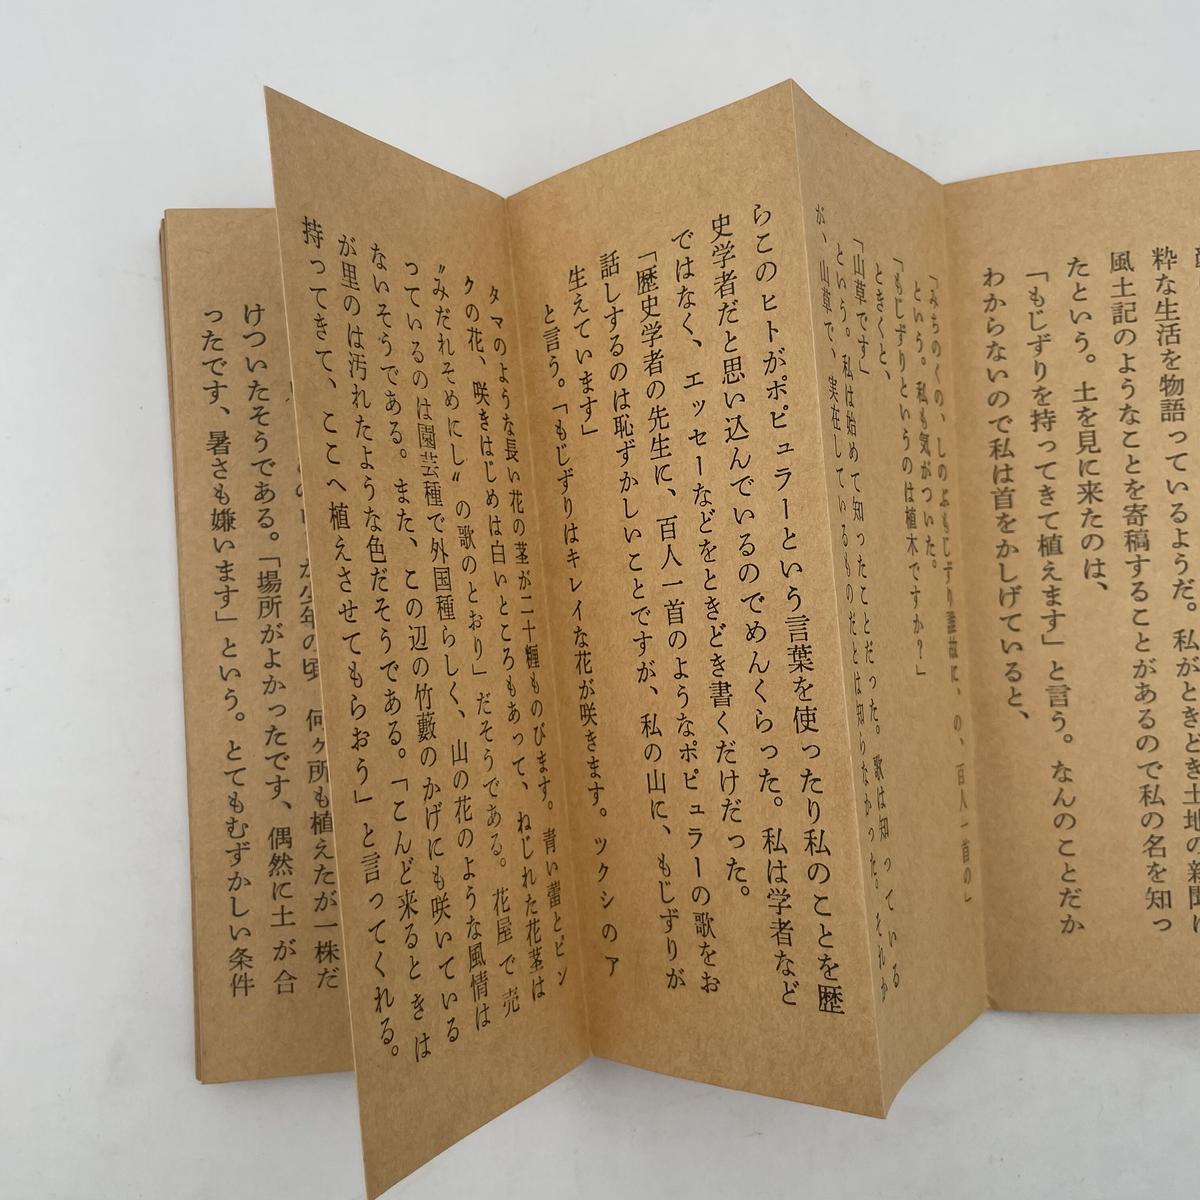 粋な生活を物語っているようだ。私がときどき土地の新聞に
風土記のようなことを寄稿することがあるので私の名を知っ
たという。土を見に来たのは、
「もじずりを持ってきて植えます」と言う。なんのことだか
わからないので私は首をかしげていると、
「みちのくの、しのぶもじずり誰故に、の、百人一首の」
という。私も気がついた。
「もじずりというのは植木ですか？」
ときくと、
「山草です」
という。私は始めて知ったことだった。歌は知っている
が、山草で、実在しているものだとは知らなかった。それか
らこのヒトがポピュラーという言葉を使ったり私のことを歴
史学者だと思い込んでいるのでめんくらった。私は学者など
ではなく、エッセーなどをときどき書くだけだった。
「歴史学者の先生に、百人一首のようなポピュラーの歌をお
話しするのは恥ずかしいことですが、私の山に、もじずりが
生えています」
と言う。「もじずりはキレイな花が咲きます。ツクシのア
タマのような長い花の茎が二十糎ものびます。青い蕾とピン
クの花、咲きはじめは白いところもあって、ねじれた花茎は
〝みだれそめにし〟の歌のとおり」だそうである。花屋で売
っているのは園芸種で外国種らしく、山の花のような風情は
ないそうである。また、この辺の竹藪のかげにも咲いている
が里のは汚れたような色だそうである。「こんど来るときは
持ってきて、ここへ植えさせてもらおう」と言ってくれる。
が少年の頃、何ヶ所も植えたが一株だ
けついたそうである。「場所がよかったです、偶然に土が合
ったです、暑さも嫌います」という。とてもむずかしい条件